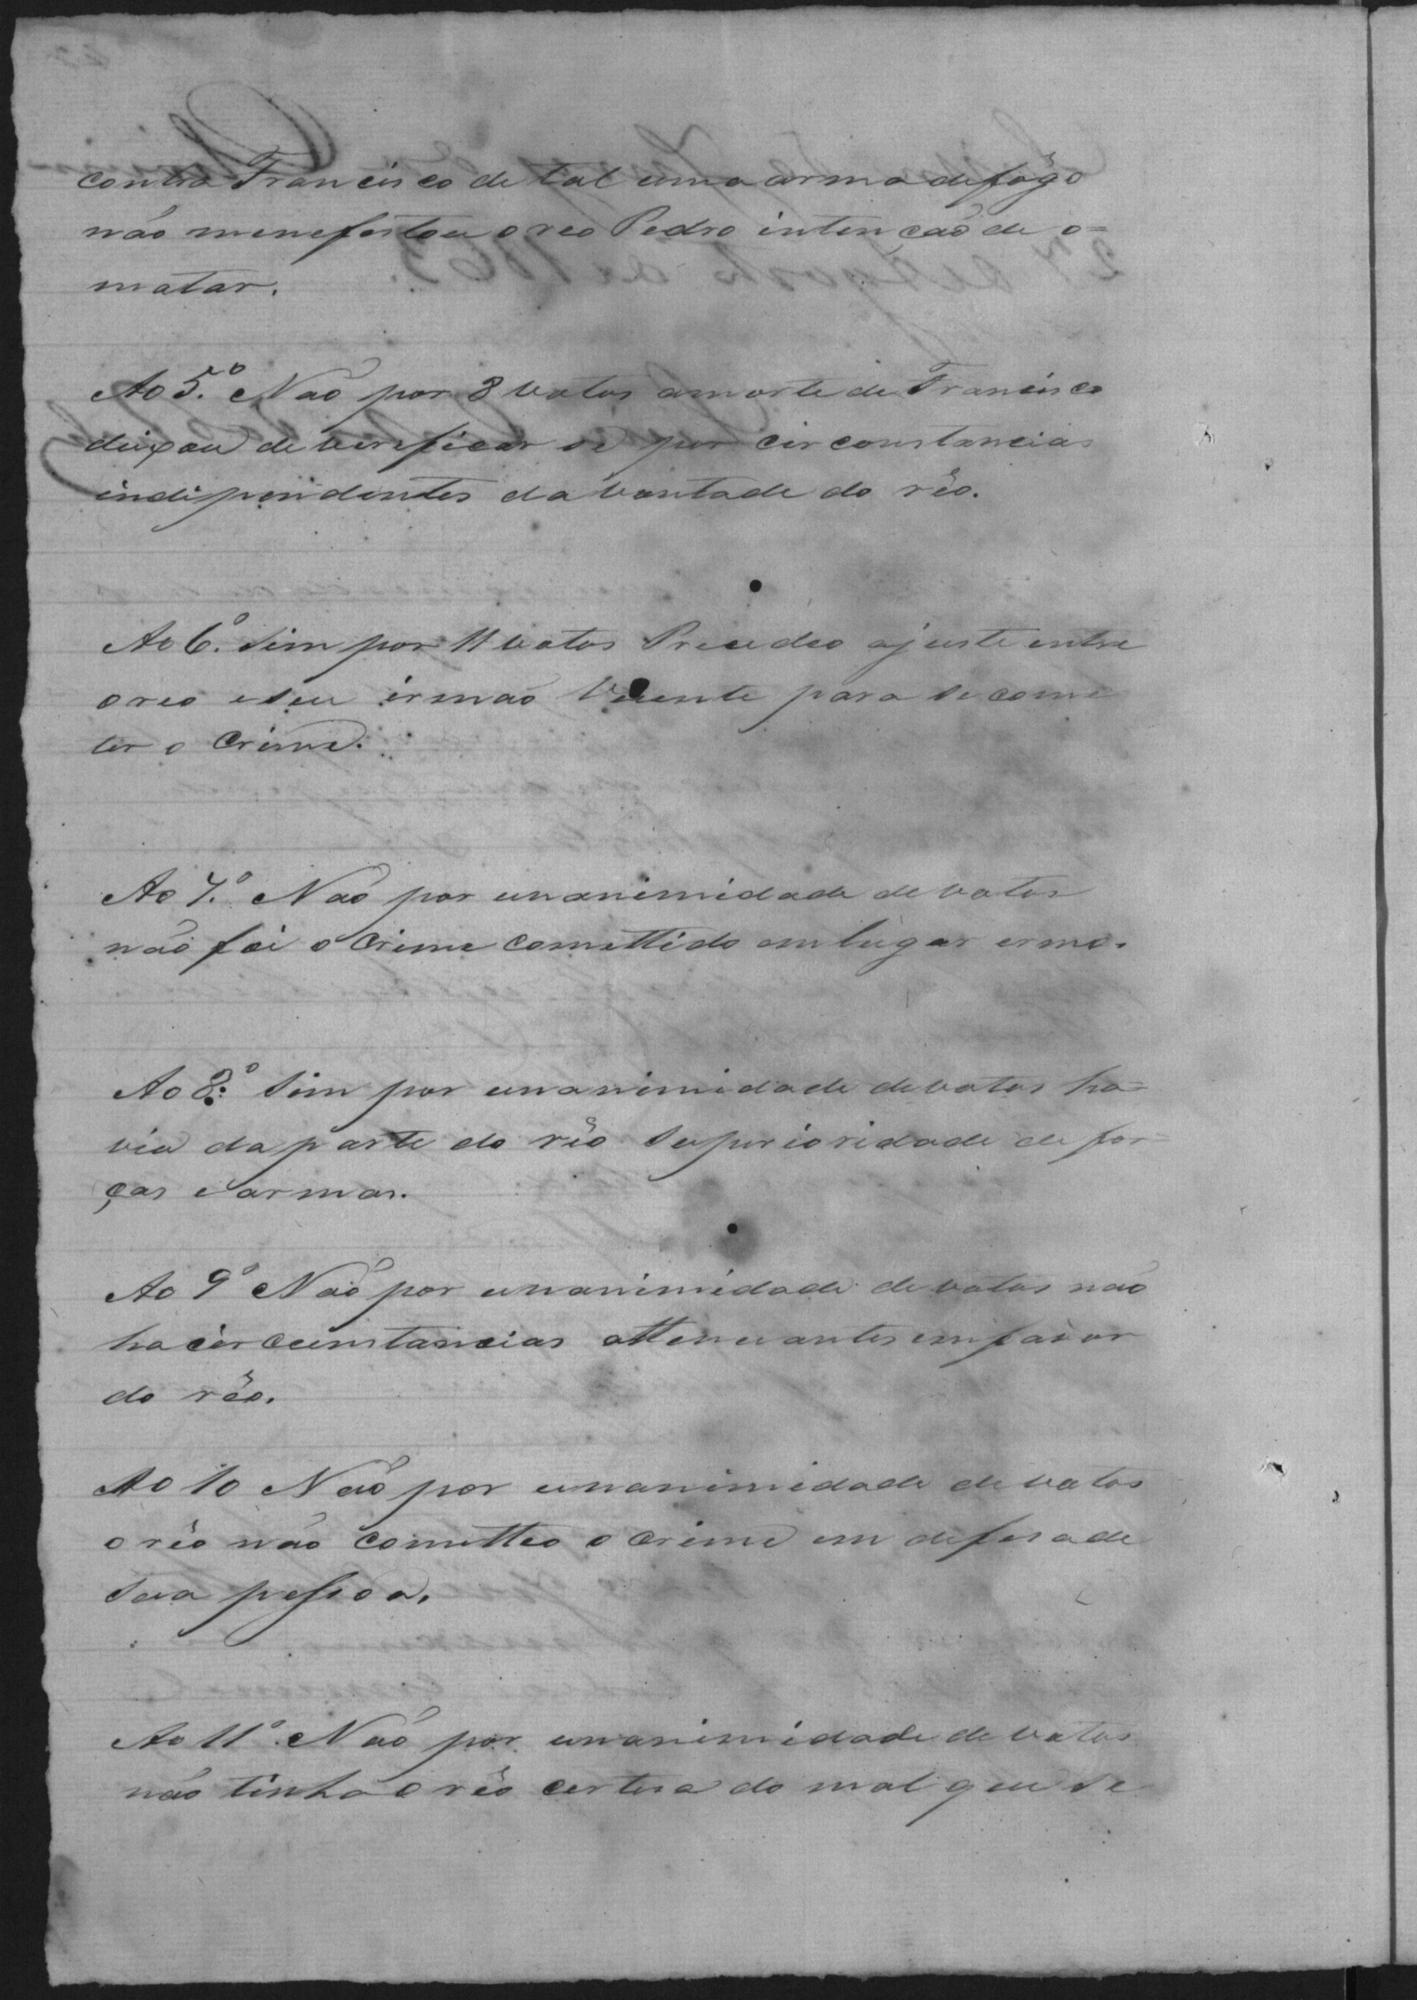 contra Francisco de tal uma arma de fôgo
não menefestou o reo Pedro intenção de o=
matar.
Ao 5.º Não por 8 votos a morte de Francisco
deixou de verificar se por circonstancias
indispendentes da vontade do rêo.
Ao 6.º Sim por 11 votos Precedeo ajuste entre
o reo e seu irmão Vicente para se come
ter o crime.
Ao 7.º Não por unanimidade de votos
não foi o crime comettido em lugar ermo.
Ao 8.º Sim por unanimidade de votos ha=
via da parte do rêo superioridade de for=
ças e armas.
Ao 9º Não por unanimidade de votos não
ha circumstancias attenuantes em favor
do rêo.
Ao 10 Não por unanimidade de votos
o rêo não cometteo o crime em defesa de
sua pessoa.
Ao 11º Não por unanimidade de votos
não tinha o rêo certesa do mal que se